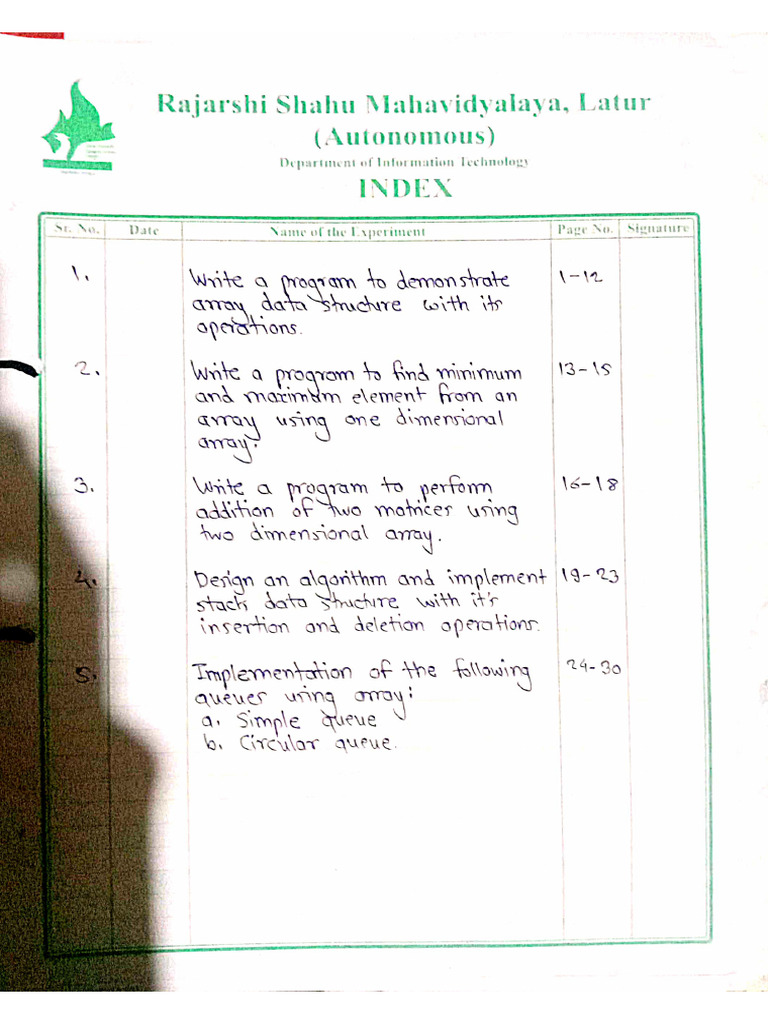 Rajarshi Shahu Mahavidyalaya, Latur
(Autonomous)
Department of Information Technology
INDEX
Sr. No. Date Name of the Experiment Page No. Signature
1. Write a program to demonstrate 1-12
array data structure with its
operations.
2. Write a program to find minimum 13-15
and maximum element from an
array using one dimensional
array.
3. Write a program to perform 16-18
addition of two matrices using
two dimensional array.
4. Design an algorithm and implement 19-23
stack data structure with it's
insertion and deletion operations.
5. Implementation of the following 24-30
queues using array:
a. Simple queue
b. Circular queue.